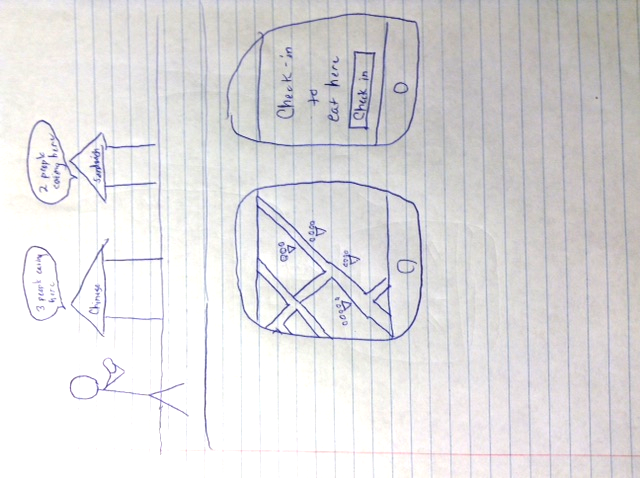 3 people eating
here
Chinese
2 people
eating here
Sandwich
Check-in
to
eat here
Check in